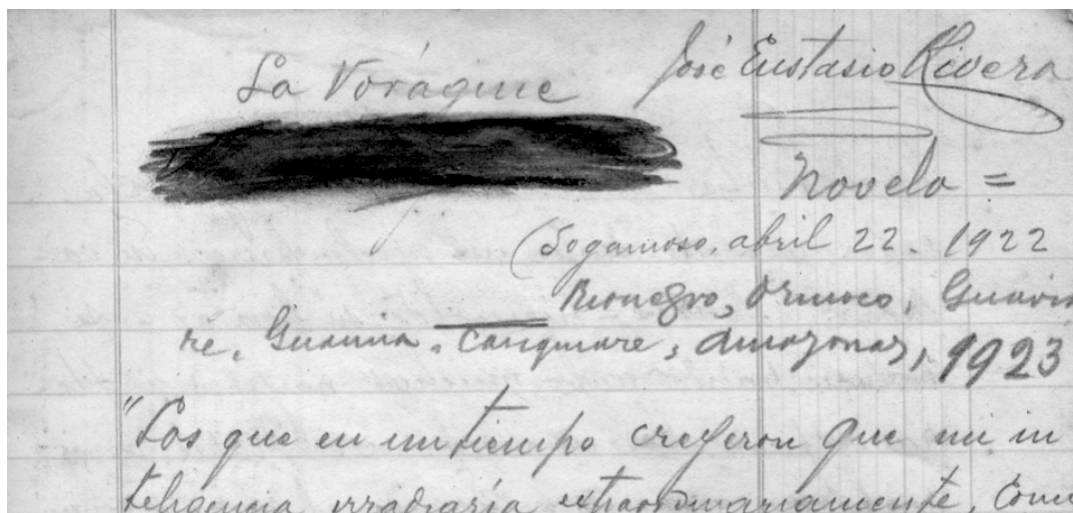 La Vorágine José Eustasio Rivera
Novela =
(Sogamoso, abril 22. 1922
Rionegro, Orinoco, Guavia
re, Guainía, Casiquiare, Amazonas, 1923
"Los que en un tiempo creyeron que mi in
teligencia irradiaría extraordinariamente, com